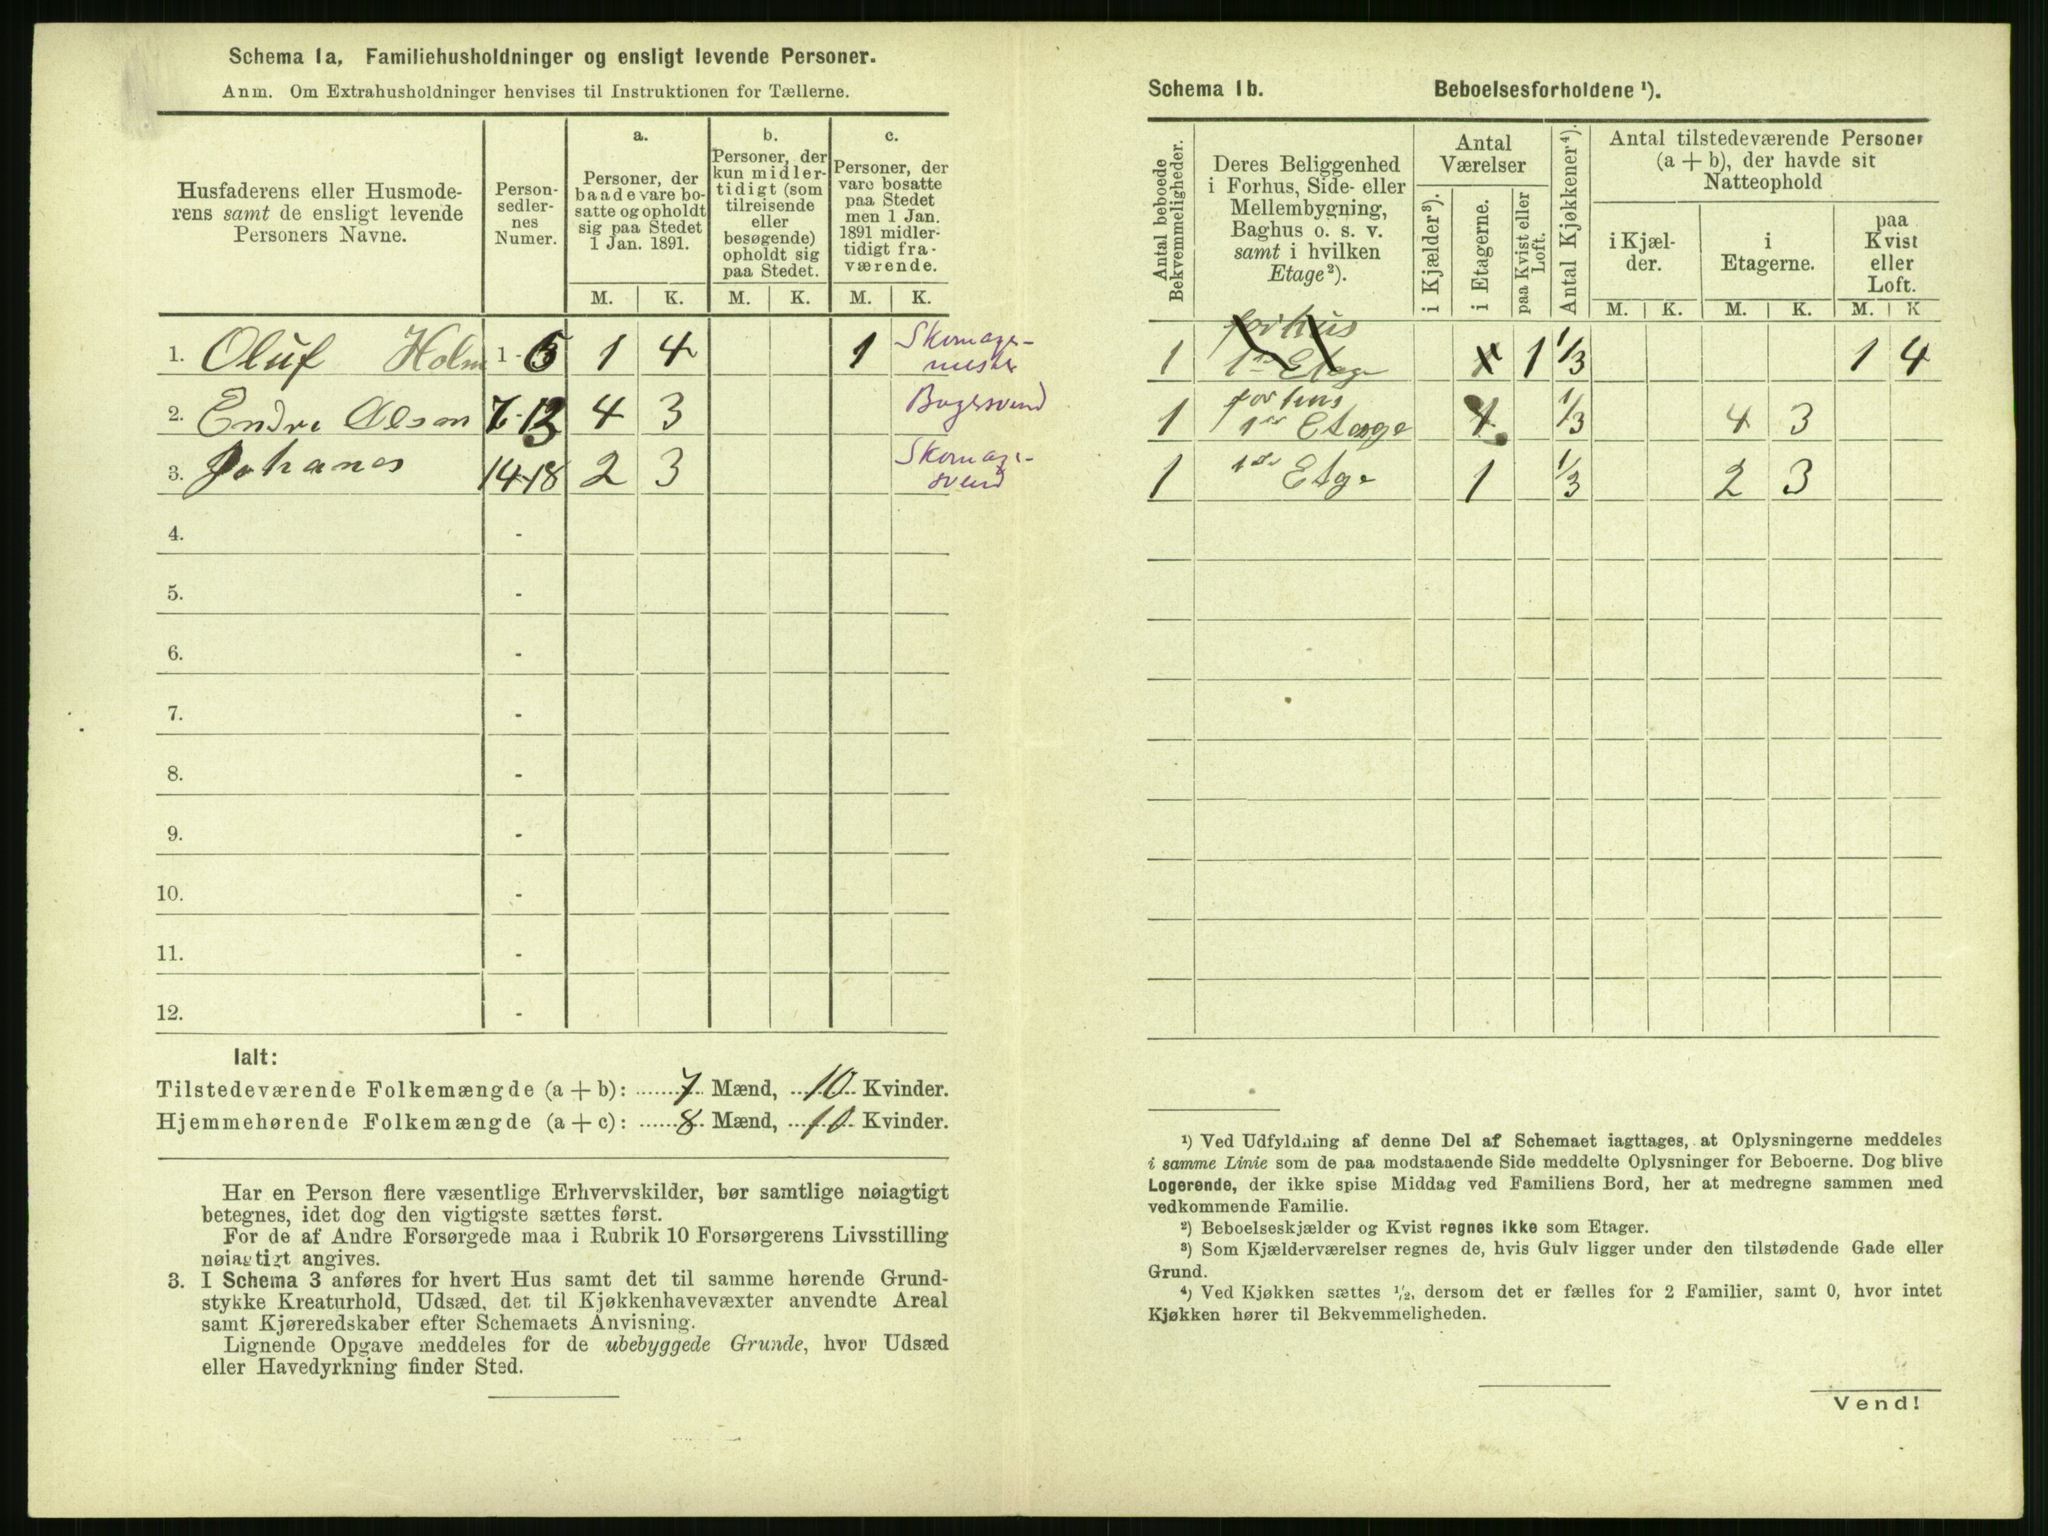 Schema 1a, Familiehusholdninger og ensligt levende Personer.
Anm. Om Extrahusholdninger henvises til Instruktionen for Tællerne.
Husfaderens eller Husmode-
rens samt de ensligt levende
Personers Navne.
Person-
sedler-
nes
Numer.
a.
Personer, der
baade vare bo-
satte og opholdt
sig paa Stedet
1 Jan. 1891.
b.
Personer, der
kun midler-
tidigt (som
tilreisende
eller
besøgende)
opholdt sig
paa Stedet.
c.
Personer, der
vare bosatte
paa Stedet
men 1 Jan.
1891 midler-
tidigt fra-
værende.
M. K. M. K. M. K.
1. Oluf Holm 1 - 6 1 4 1 Skomager-
mester
2. Endre Olsen 7-13 4 3 Bagersvend
3. Johanes 14-18 2 3 Skomager-
svend
4. -
5. -
6. -
7. -
8. -
9. -
10. -
11. -
12. -
Ialt:
Tilstedeværende Folkemængde (a + b): 7 Mænd, 10 Kvinder.
Hjemmehørende Folkemængde (a + c): 8 Mænd, 10 Kvinder.
Har en Person flere væsentlige Erhvervskilder, bør samtlige nøiagtigt
betegnes, idet dog den vigtigste sættes først.
For de af Andre Forsørgede maa i Rubrik 10 Forsørgerens Livsstilling
nøiagtigt angives.
3. I Schema 3 anføres for hvert Hus samt det til samme hørende Grund-
stykke Kreaturhold, Udsæd, det til Kjøkkenhavevæxter anvendte Areal
samt Kjøreredskaber efter Schemaets Anvisning.
Lignende Opgave meddeles for de ubebyggede Grunde, hvor Udsæd
eller Havedyrkning finder Sted.
Schema 1b. Beboelsesforholdene ¹).
Antal beboede
Bekvemmeligheder.
Deres Beliggenhed
i Forhus, Side- eller
Mellembygning,
Baghus o. s. v.
samt i hvilken
Etage²).
Antal
Værelser
i Kjælder³).
i Etagerne.
paa Kvist eller
Loft.
Antal Kjøkkener⁴).
Antal tilstedeværende Personer
(a + b), der havde sit
Natteophold
i Kjæl-
der.
i
Etagerne.
paa
Kvist
eller
Loft.
M. K. M. K. M. K
forhus
1 1ste Etage 1 1/3 1 4
forhus
1 1ste Etage 1/3 4 3
1 1ste Etge 1 1/3 2 3
¹) Ved Udfyldning af denne Del af Schemaet iagttages, at Oplysningerne meddeles
i samme Linie som de paa modstaaende Side meddelte Oplysninger for Beboerne. Dog blive
Logerende, der ikke spise Middag ved Familiens Bord, her at medregne sammen med
vedkommende Familie.
²) Beboelseskjælder og Kvist regnes ikke som Etager.
³) Som Kjælderværelser regnes de, hvis Gulv ligger under den tilstødende Gade eller
Grund.
⁴) Ved Kjøkken sættes 1/2, dersom det er fælles for 2 Familier, samt 0, hvor intet
Kjøkken hører til Bekvemmeligheden.
Vend!